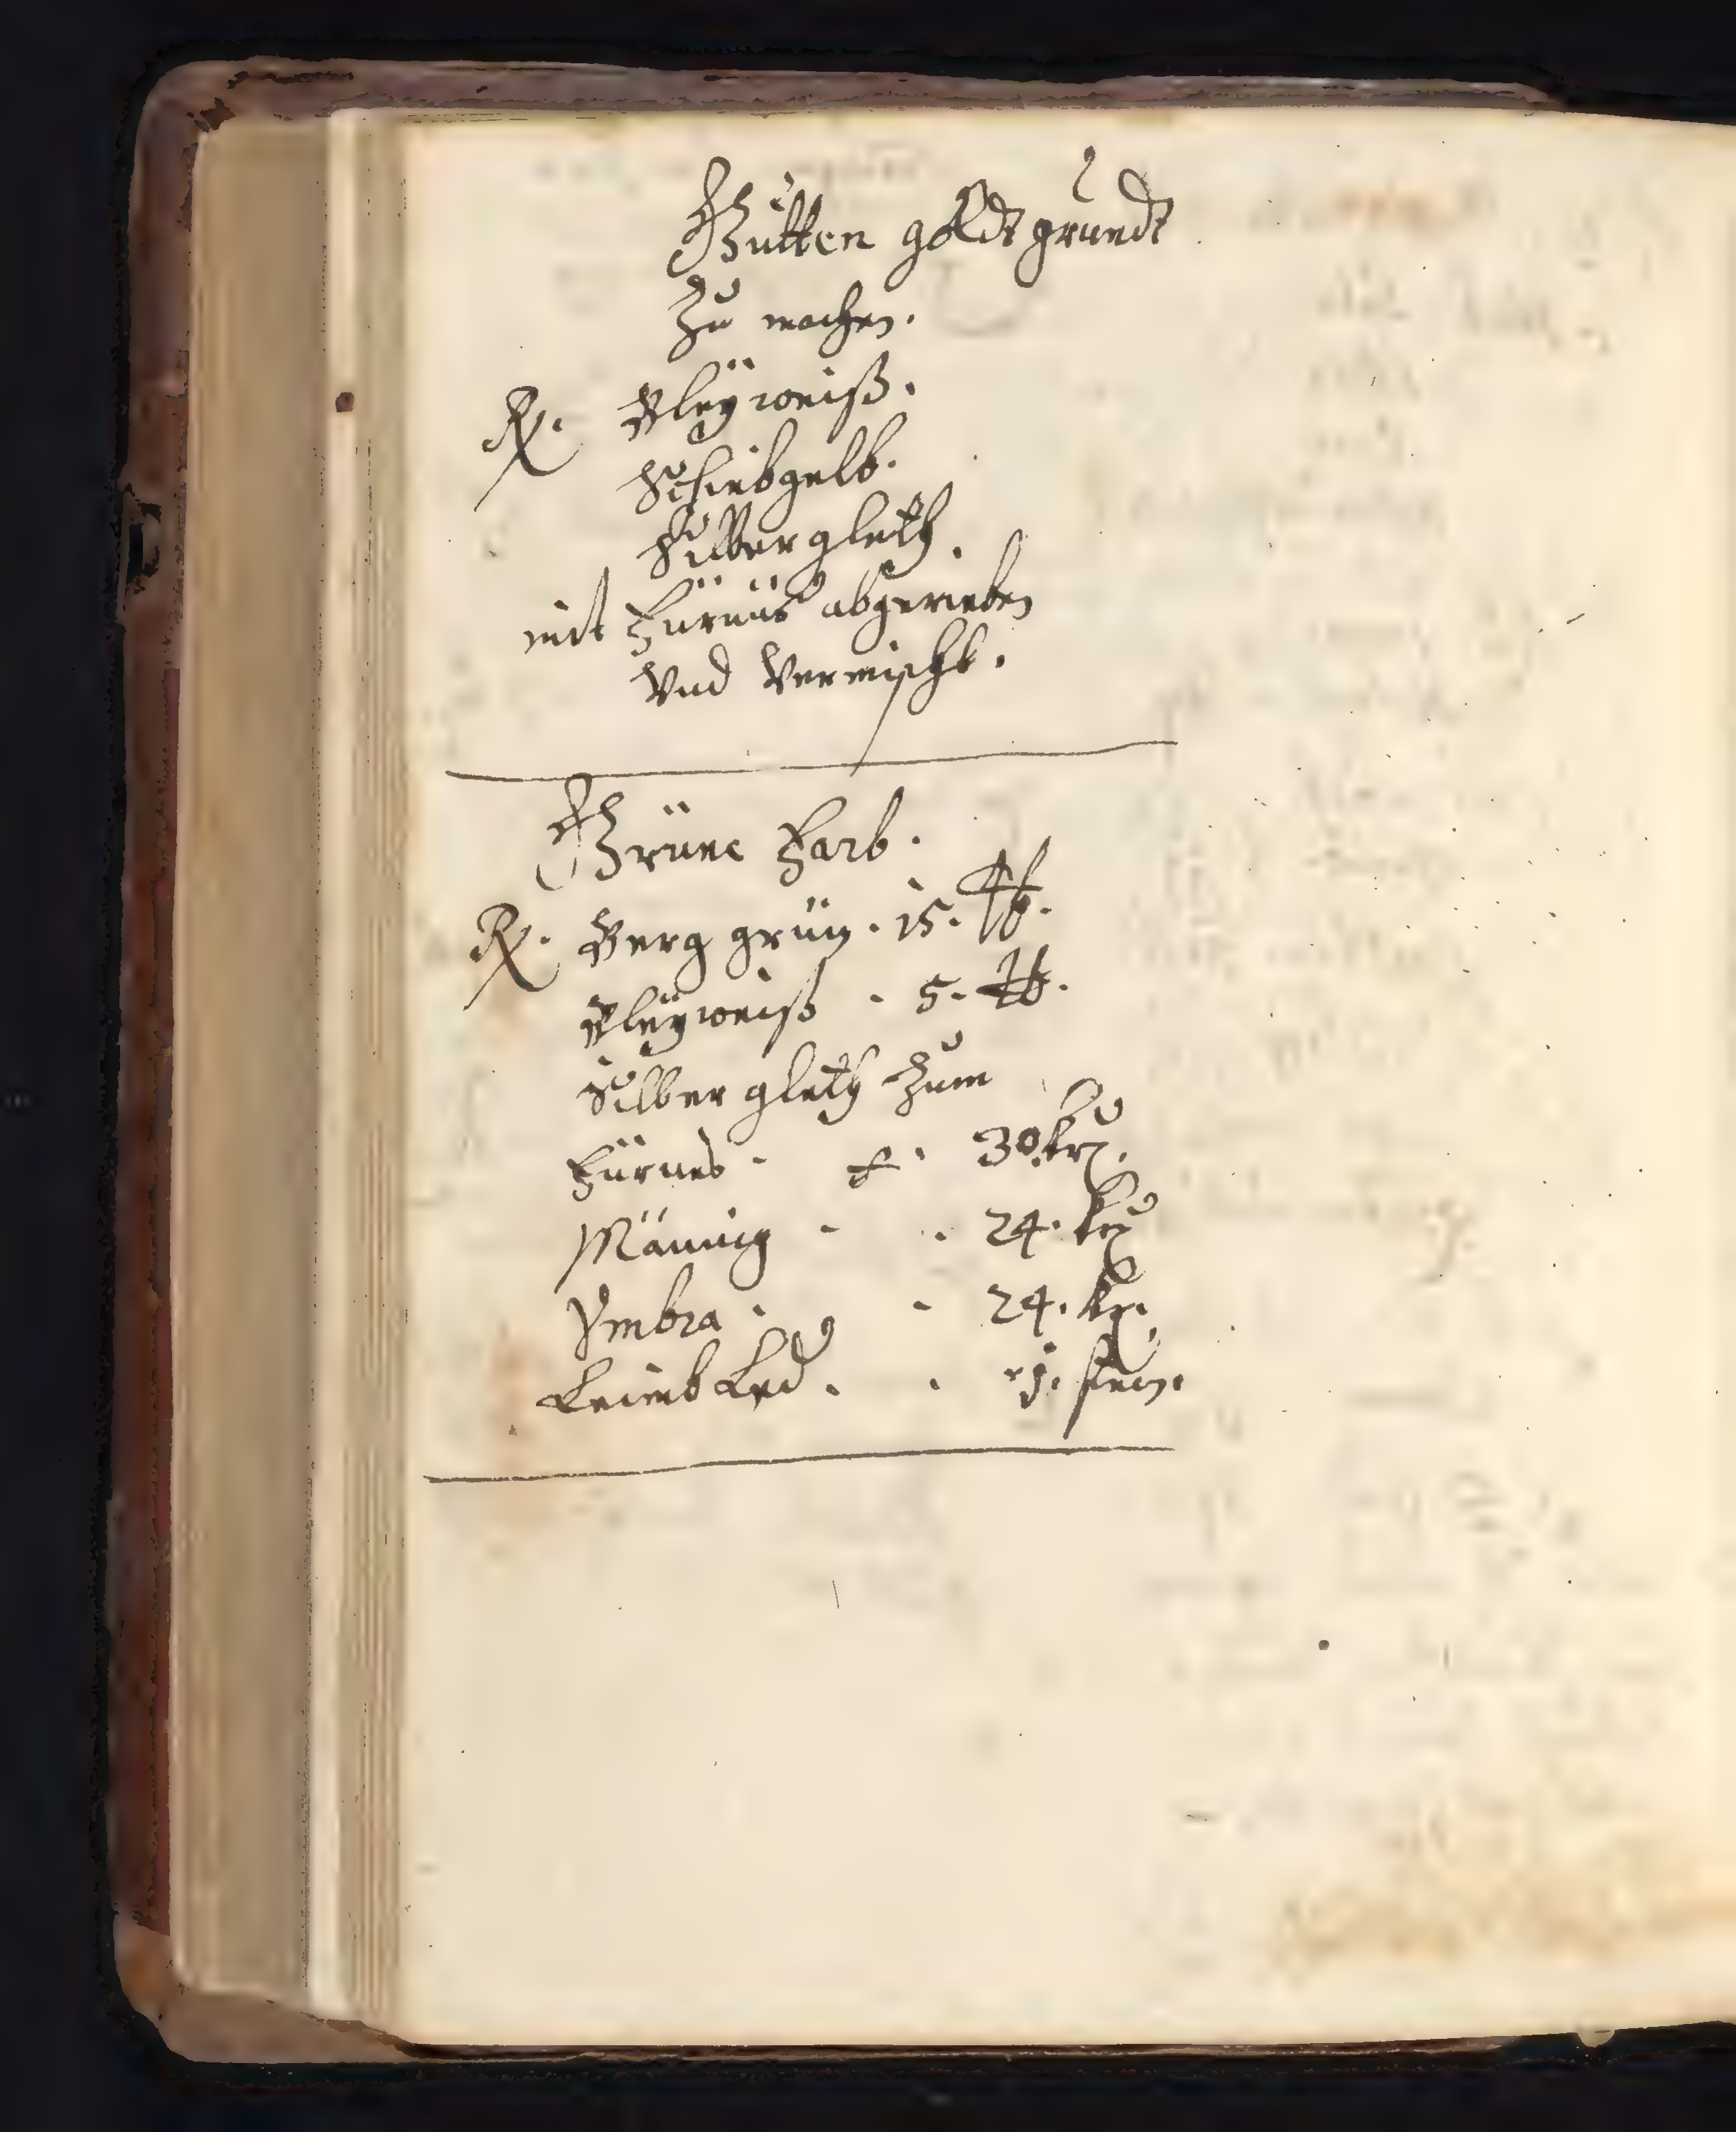 Gutten goldt grundt
Zu machen.
℞. Bleÿweiß.
Schiebgelb.
Silber gleth.
mit Fürnüs abgerieben
Vnd Vermischt.
Grüne Farb.
℞. Berg grün. 15. ℔.
Bleÿweiß . 5. ℔.
Silber gleth Zum
Fürnes . 30. krz.
Männig . . 24. krz
Vmbra . . 24. kr.